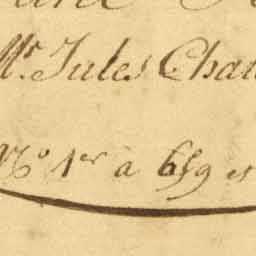 Mr. Jules Chau
No. 1er à 659 et